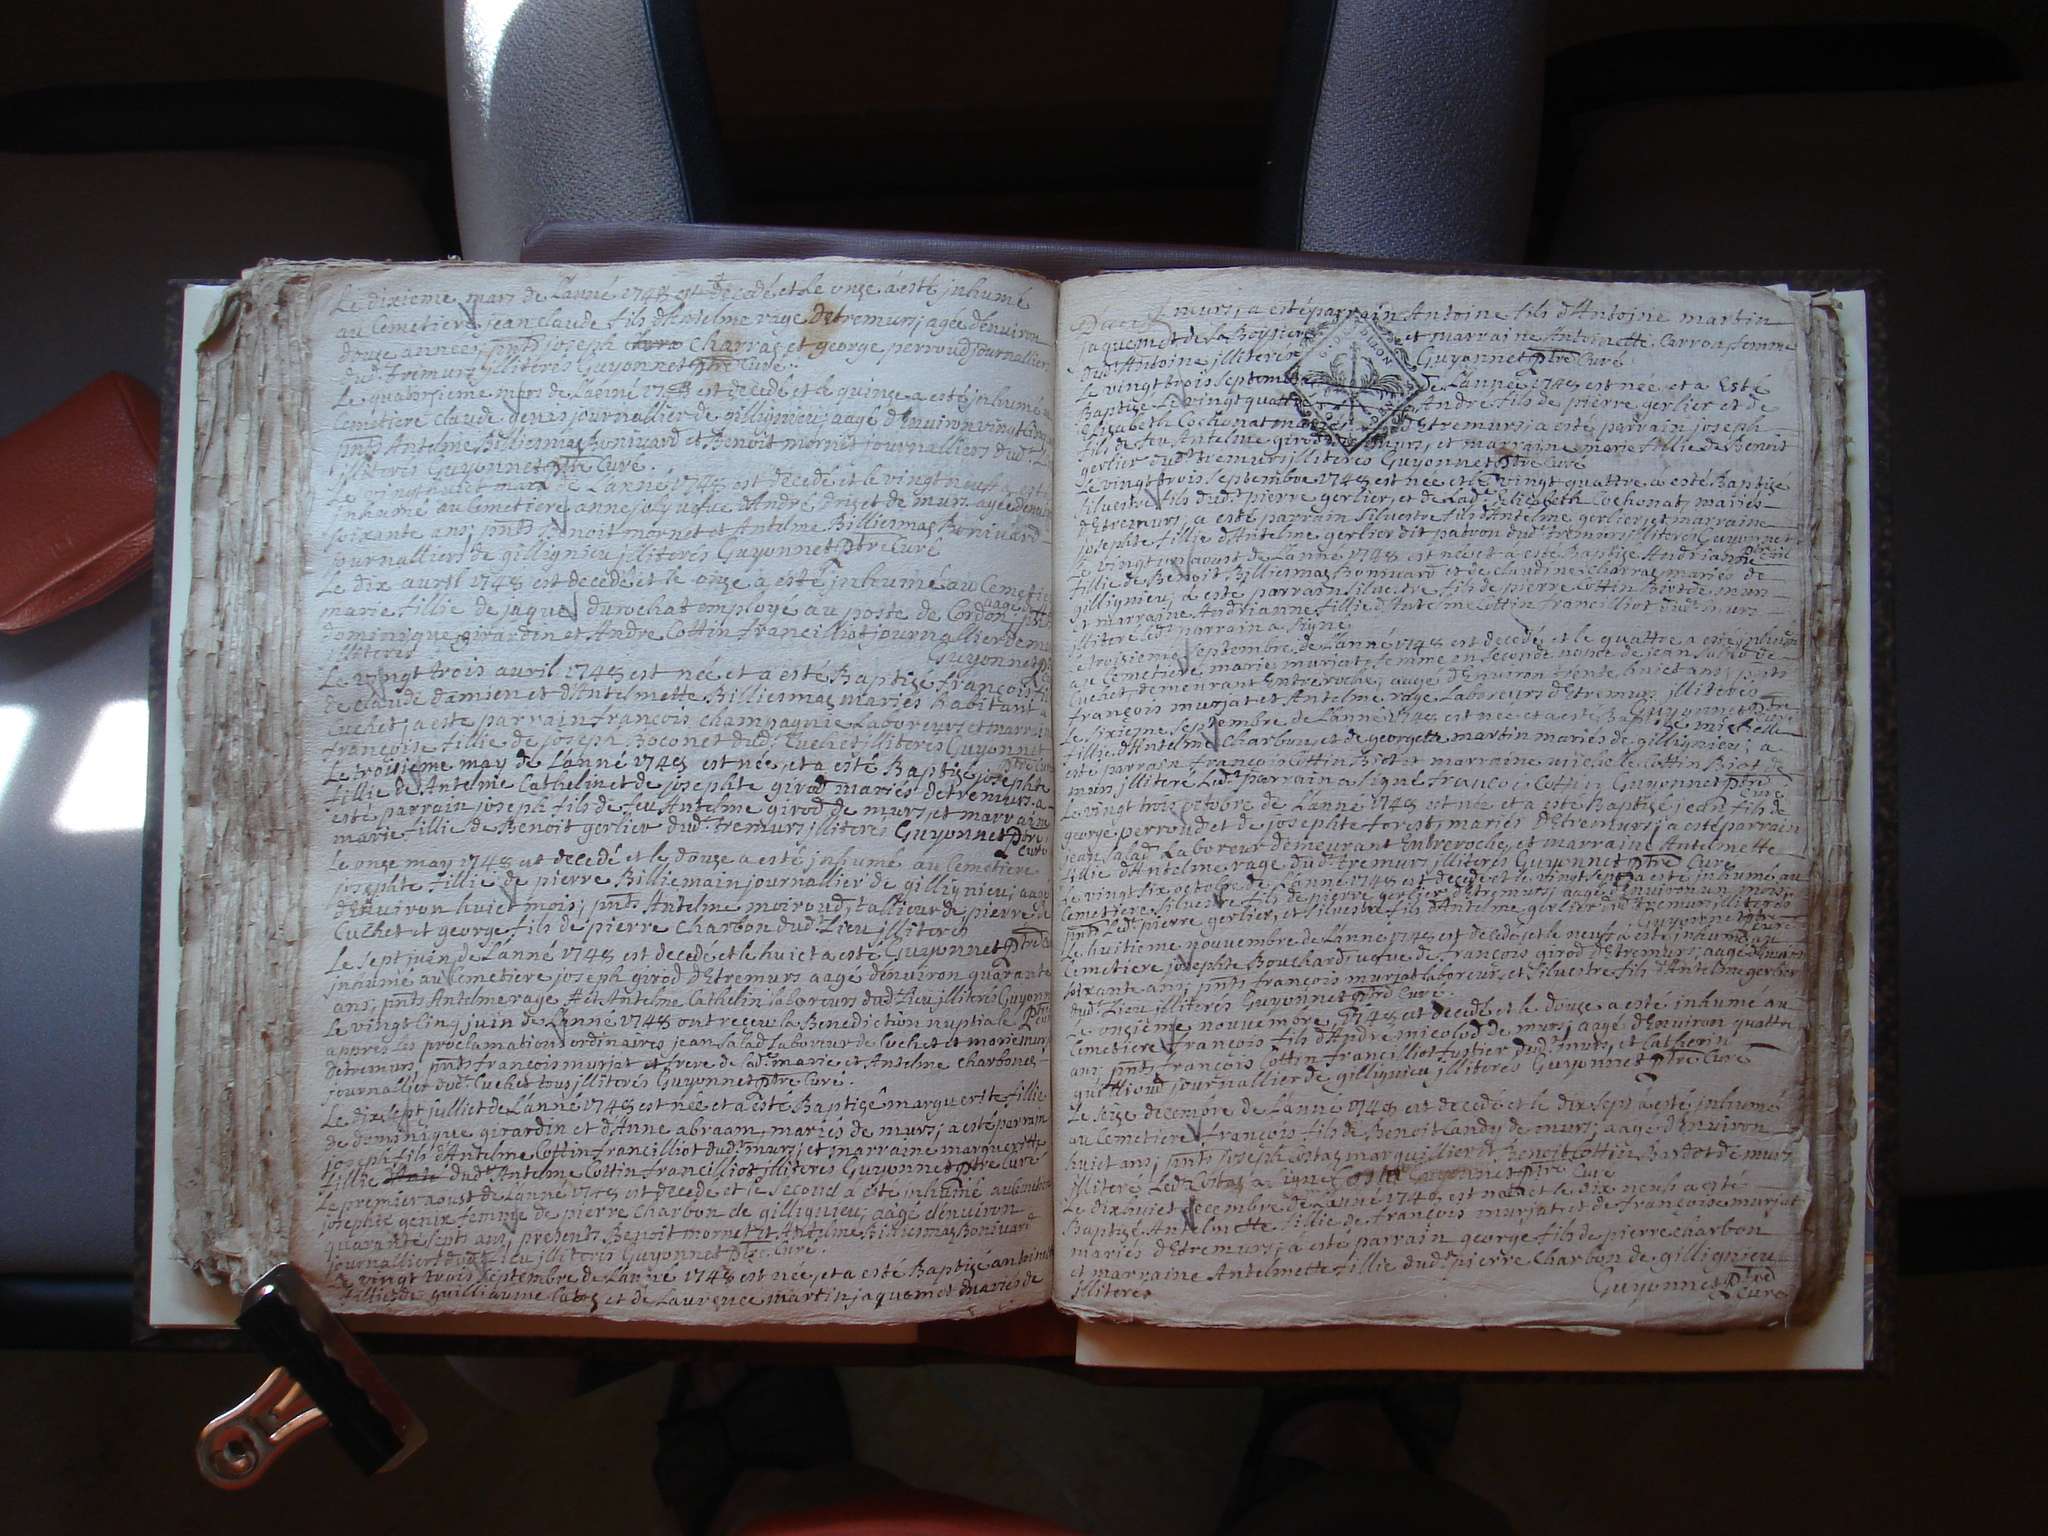 Le dixieme mars de Lanné 1748 est decedé et Le onze a esté jnhumé
au Cemetiere jean claude fils d'Antelme rage detremurs; agée d'Enuiron
douze années; pnts joseph Charras et george perroud journalliers
dudt tremurs jlliteres Guyonnet ptre Curé.
Le quatorsieme mars de Lanné 1748 est decedé et le quinze a esté jnhumé
cemetiere claude genis journallier de gillignieu; aagé d'Enuiron vingt cinq
pnts Antelme Billiemas Boniuard et Benoit mornet journalliers dudt
jlliteres Guyonnet ptre Curé.
Le vingt huict mars de Lanné 1748 est decedé et le vingt neuf a esté
jnhumé au Cemetiere anne joly vefue d'André de murs agée denuiron
soixante ans; pnts Benoit mornet et Antelme Billiemas Boniuard
journalliers de gillignieu jlliteres Guyonnet ptre Curé
Le dix auril 1748 est decedé et le onze a esté jnhumé au Cemetiere
marie fillie de jaque durochat employé au poste de Cordon
dominique girardin et Andre Cottin francilliot journallier de murs
jlliteres Guyonnet
Le vingt trois auril 1748 est née et a esté Baptizé françois
de claude damien et d'Antelmette Billiemas mariés habitant a
Cuchet; a esté parrain francois champagnie Laboreur; et marraine
françoise fillie de joseph Boconet dudt Cuchet jlliteres Guyonnet
ptre Curé
Le troisieme may de Lanné 1748 est née, et a esté Baptizé josephte
fillie de Antelme Cathelin et de josephte girod mariés detremurs a
esté parrain joseph fils de feu Antelme girod de murs, et marraine
marie fillie de Benoit gerlier dudt tremurs jlliteres Guyonnet ptre
Curé
Le onze may 1748 est decedé et le douze a esté jnhumé au Cemetiere
josephte fillie de pierre Billiemain journallier de gillignieu; aagé
d'Enuiron huict mois; pnts Antelme moiroud; tallieur de pierre de
Cuchet et george fils de pierre Charbon dudt Lieu jlliteres
Guyonnet ptre Curé
Le sept juin de Lanné 1748 est decedé et le huict a esté
jnhumé au Cemetiere joseph girod d'Etremurs aagé d'enuiron quarante
ans; pnts Antelme rage et Antelme Cathelin laboreurs dudt Lieu jlliterés Guyonnet
Le vingt cinq juin de Lanné 1748 ont reçeu la Benediction nuptiale ptre Curé
appres les proclamations ordinaires jean salad Laboreur de Cuchet et marie murjat
detremurs, pnts francois murjat et frere de ladt marie et Antelme Charbonet
journallier dudt Cuchet tous jlliterés Guyonnet ptre Curé.
Le dix sept julliet de Lanné 1748 est née et a esté Baptizé marguerite fillie
de dominique girardin et d'Anne abraam mariés de murs; a esté parrain
joseph fils d'Antelme Cottin francilliot dudt murs; et marraine marguerite
fillie dudt Antelme Cottin francilliot jlliteres Guyonnet ptre Curé
Le premier aoust de Lanné 1748 est decedé et le second a esté jnhumé au Cemetiere
josephte genix femme de pierre Charbon de gillignieu; aagé denuiron
quarante sept ans; presents Benoit mornet et Antelme Billiemas Boniuard
journalliers dudt Lieu jlliteris Guyonnet ptre Curé.
Le vingt trois septembre de Lanné 1748 est née, et a esté Baptizé
fillie de guilliaume et de Laurence martin jaquemet mariés de
murs; a esté parrain Antoine fils d'Antoine martin
jaquemet de la Boissiere et marraine Antoinette Carron femme
dudt Antoine jlliteres Guyonnet ptre Curé.
Le vingt trois septembre de Lanné 1748 est née et a Esté
Baptize Le vingt quatre André fils de pierre gerlier et de
Elizabeth Cochonat mariés d'Etremurs; a esté parrain joseph
fils de feu Antelme girod de murs, et marraine marie fillie de Benoit
gerlier dudt tremurs jlliteres Guyonnet ptre Curé
Le vingt trois septembre 1748 est née et le vingt quattre a esté Baptize
siluestre fils dudt pierre gerlier, et de Ladt Elizabeth Cochonat, mariés
d'Etremurs, a esté parrain siluestre fils d'Antelme gerlier; et marraine
josephte fillie d'Antelme gerlier dit patron dudt tremurs jlliteres Guyonnet ptre
Le vingt aoust de Lanné 1748 est née et a esté Baptizé Andrianne
fillie de Benoit Billiemas Boniuard et de claudine Charras mariés de
gillignieu; a esté parrain siluestre fils de pierre Cottin Biot de murs
et marraine Andrianne fillie d'Antelme Cottin francilliot dudt murs
jllitere Ledt parrain a signé
Le troisieme septembre de Lanné 1748 est decedé, et le quattre a esté jnhumé
au Cemetiere, marie murjat; femme en seconde nopce de jean salad de
Cuchet, demeurant Entreroche, aagé d'Enuiron trente huict ans; pnts
françois murjat et Antelme rage Laboreurs d'Etremurs jlliteres
Guyonnet ptre Curé
Le sixieme septembre de Lanné 1748 est née et a esté Baptizé michelle
fillie d'Antelme Charbon, et de georgette martin mariés de gillignieu; a
esté parrain françois Cottin Biot et marraine michele Cottin Biot de
murs jlliteré Ledt parrain a signé francois Cottin Guyonnet ptre Curé
Le vingt trois octobre de Lanné 1748 est née et a esté Baptizé jean fils de
george perroud et de josephte forest; mariés d'Etremurs; a esté parrain
jean salad Laboreur demeurant Entreroche, et marraine Antelmette
fillie d'Antelme rage dudt tremurs jlliteres Guyonnet ptre Curé
Le vingt six octobre de Lanné 1748 est decedé et le vingt sept a esté jnhumé au
Cemetiere siluestre fils de pierre gerlier d'Etremurs; aagé d'Enuiron un mois
pnts Ledt pierre gerlier, et siluestre fils d'Antelme gerlier dudt tremurs jlliteres
Guyonnet ptre Curé
Le huitieme nouuembre de Lanné 1748 est decedé, et le neuf a esté jnhumé au
Cemetiere josephte Bouchard; vefue de françois girod d'Etremurs; aagé d'Enuiron
soixante ans; pnts françois murjat laboreur, et siluestre fils d'Antelme gerlier
dudt Lieu jlliterés Guyonnet ptre Curé.
Le onsieme nouuembre 1748 est decedé et le douze a esté inhumé au
Cemetiere françois fils d'Andre micolod de murs; aagé d'Enuiron quattre
ans; pnts françois Cottin francilliot fustier dudt murs, et Catherin
quittroud journallier de gillignieu jlliteres Guyonnet ptre Curé
Le seize decembre de Lanné 1748 est decedé et le dix sept a esté jnhumé
au Cemetiere françois fils de Benoit Landy de murs; aagé d'Enuiron
huict ans; pnts joseph Costaz marquillier et Benoit Cottin Bordot de murs
jlliteré Ledt Costaz a signé Guyonnet ptre Curé
Le dix huict decembre de Lanné 1748 est née et le dix neuf a esté
Baptizé Antelmette fillie de françois murjat, et de francoise murjat
mariés d'Etremurs; a esté parrain george fils de pierre Charbon
et marraine Antelmette fillie dudt pierre Charbon de gillignieu
jlliteres Guyonnet ptre
Curé